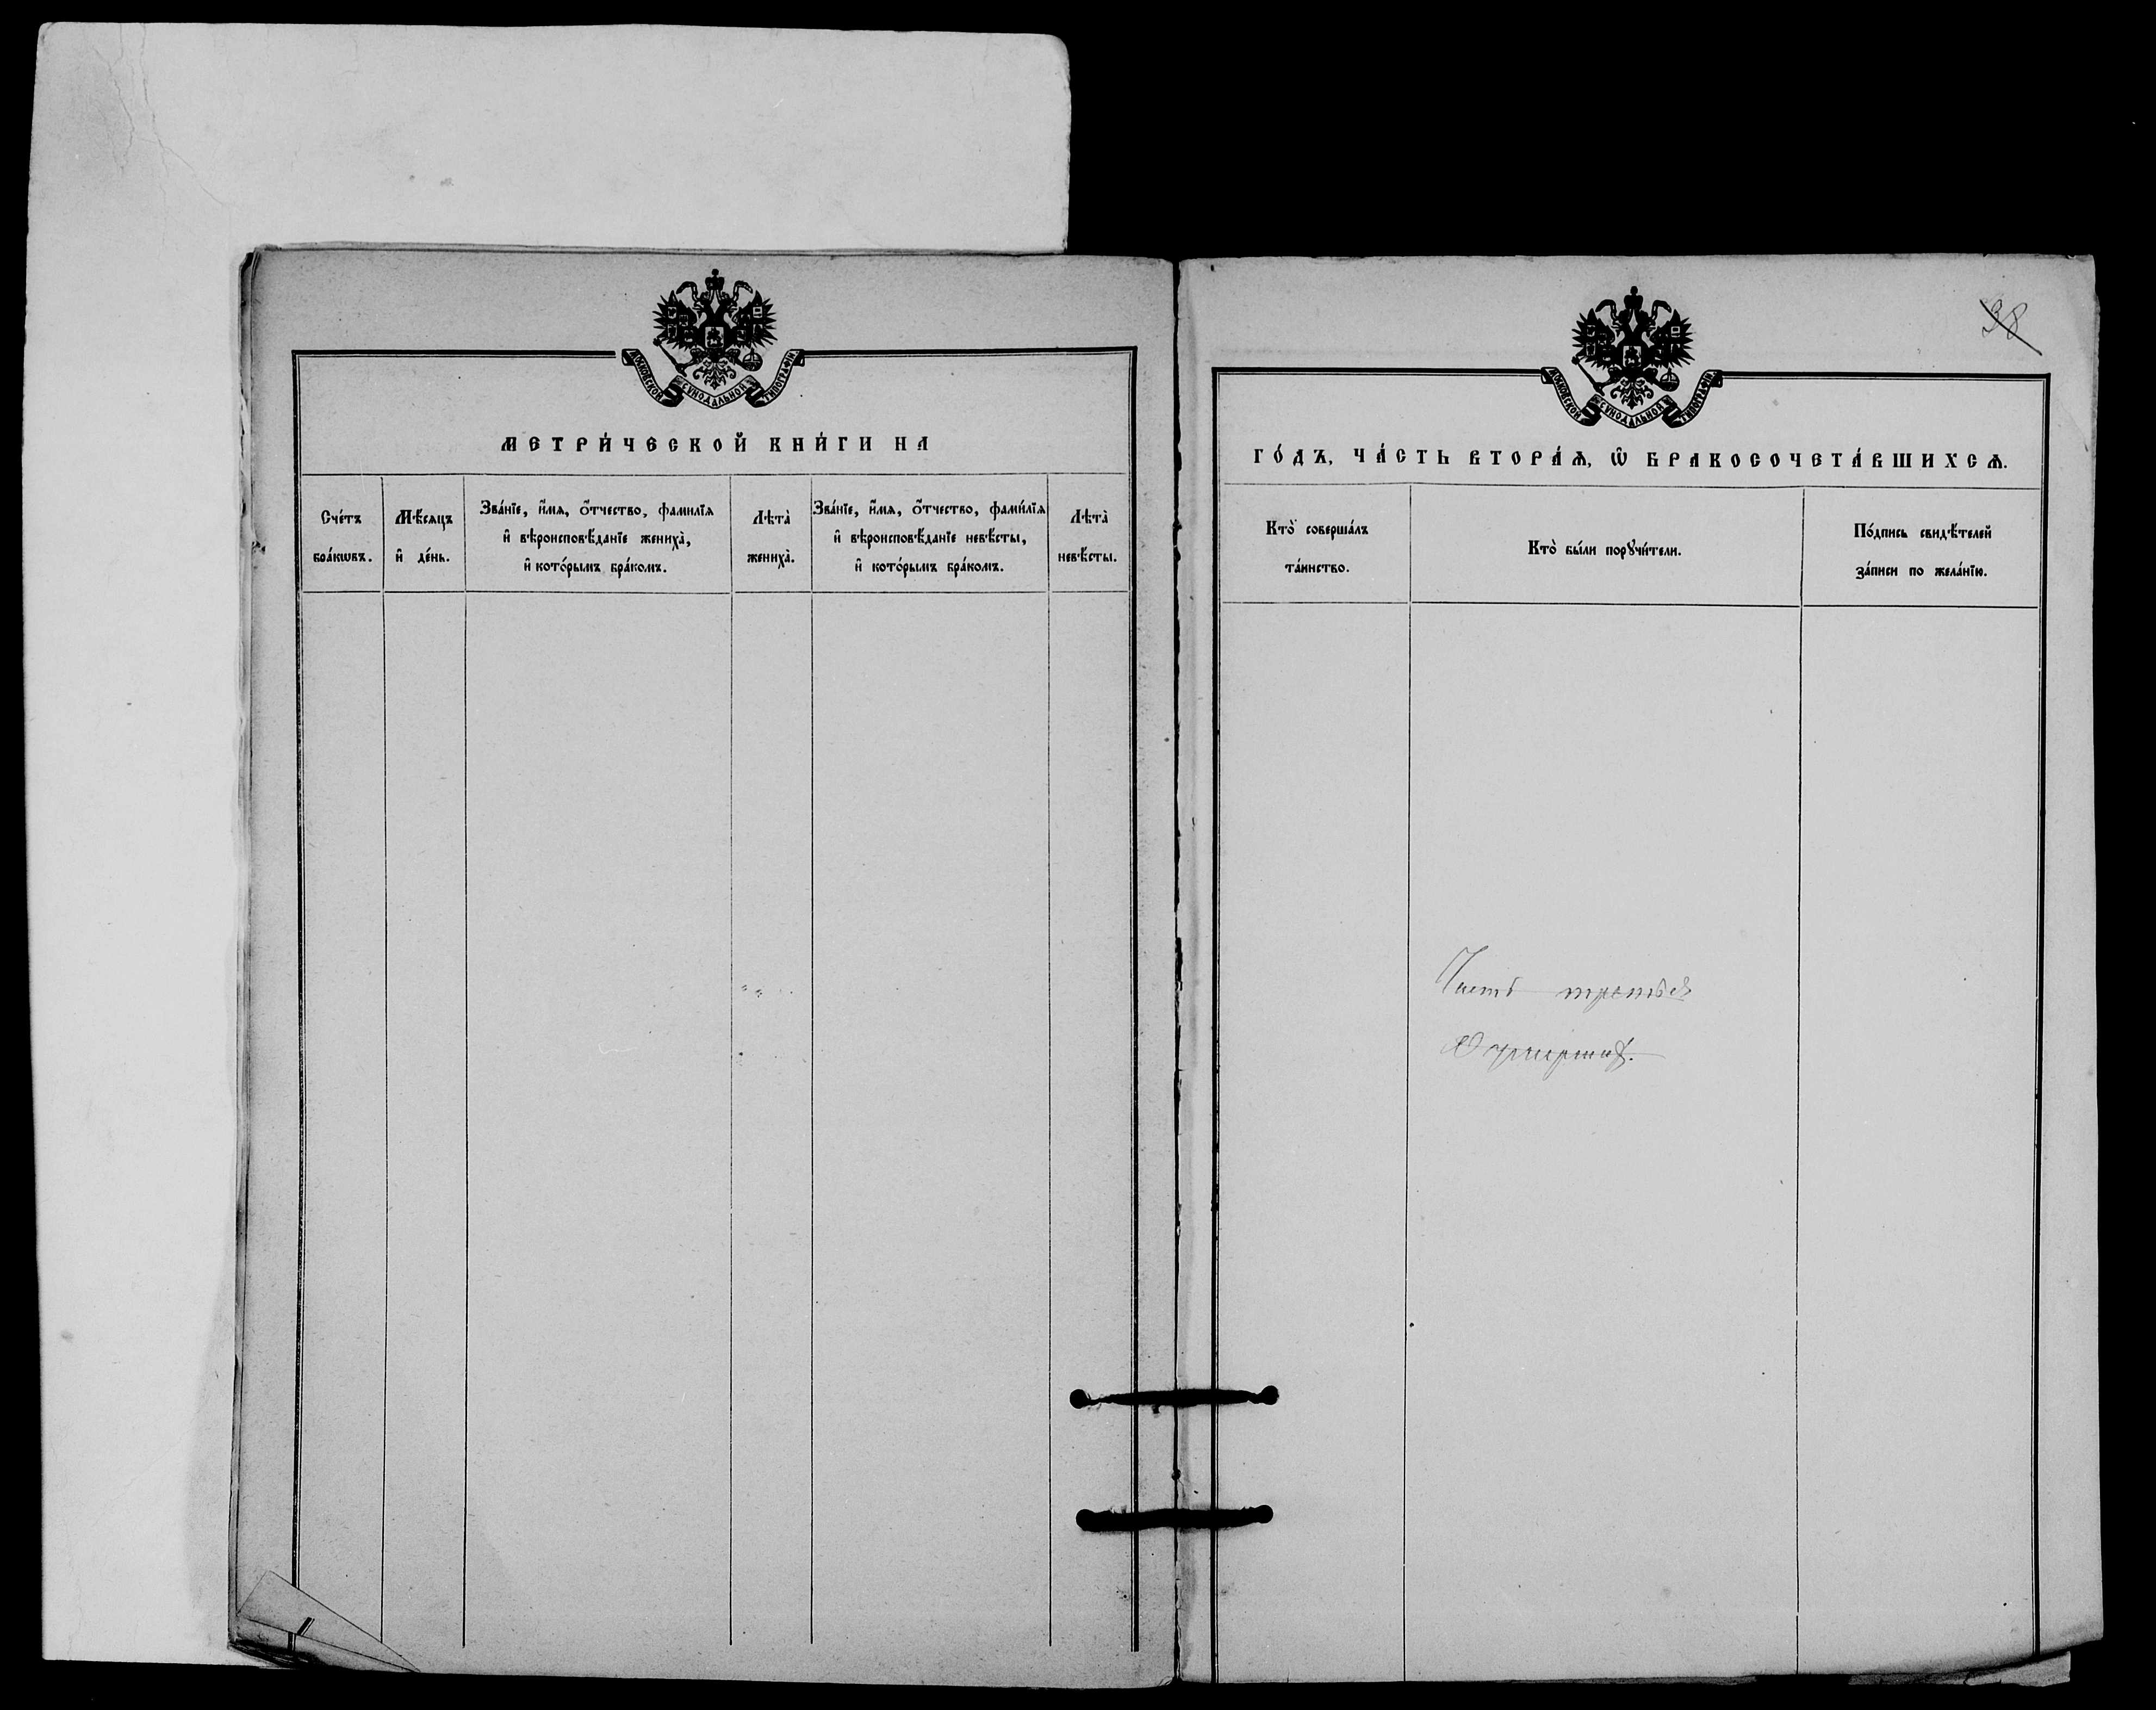 МОСКОВСКОЙ СУНОДАЛЬНОЙ ТИПОГРАФІИ
МЕТРИ́ЧЕСКОЙ КНИ́ГИ НА
Сче́тъ
бра́кωвъ.
Мѣ́сяцъ
и҆ де́нь.
Зва́нїе, и҆́мѧ, ѻ҆́тчество, фамилїѧ
и҆ вѣроисповѣ́данїе жениха̀,
и҆ кото́рымъ бра́комъ.
Лѣта̀
жениха̀.
Зва́нїе, и҆́мѧ, ѻ҆́тчество, фами́лїѧ
и҆ вѣроисповѣ́данїе невѣ́сты,
и҆ кото́рымъ бра́комъ.
Лѣта̀
невѣ́сты.
38
МОСКОВСКОЙ СУНОДАЛЬНОЙ ТИПОГРАФІИ
ГО́ДЪ, ЧА́СТЬ ВТОРА́Ѧ, Ѽ БРАКОСОЧЕТА́ВШИХСѦ.
Кто̀ соверша́лъ
та́инство.
Кто̀ бы́ли порꙋчи́тели.
По́дпись свидѣ́телей
за́писи по жела́нїю.
Часть третья
О умерших.